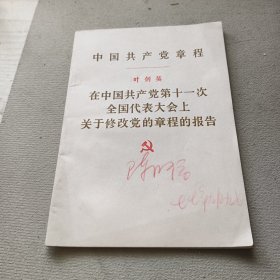 中国共产党章程
叶剑英
在中国共产党第十一次
全国代表大会上
关于修改党的章程的报告